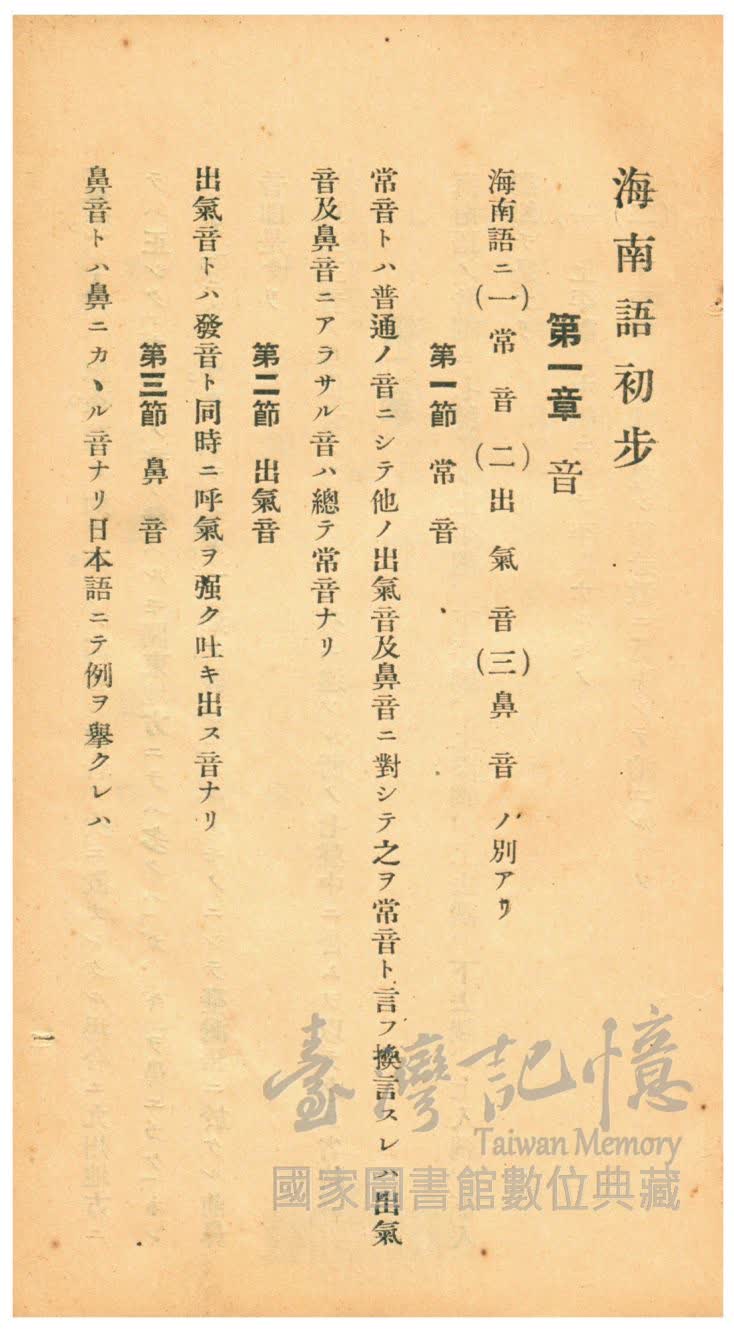 海南語初步
第一章 音
海南語ニ(一)常音(二)出氣音(三)鼻音ノ別アリ
第一節 常音
常音トハ普通ノ音ニシテ他ノ出氣音及鼻音ニ對シテ之ヲ常音ト言フ換言スレハ出氣
音及鼻音ニアラサル音ハ總テ常音ナリ
第二節 出氣音
出氣音トハ發音ト同時ニ呼氣ヲ强ク吐キ出ス音ナリ
第三節 鼻音
鼻音トハ鼻ニカヽル音ナリ日本語ニテ例ヲ擧クレハ
一
臺灣記憶
Taiwan Memory
國家圖書館數位典藏